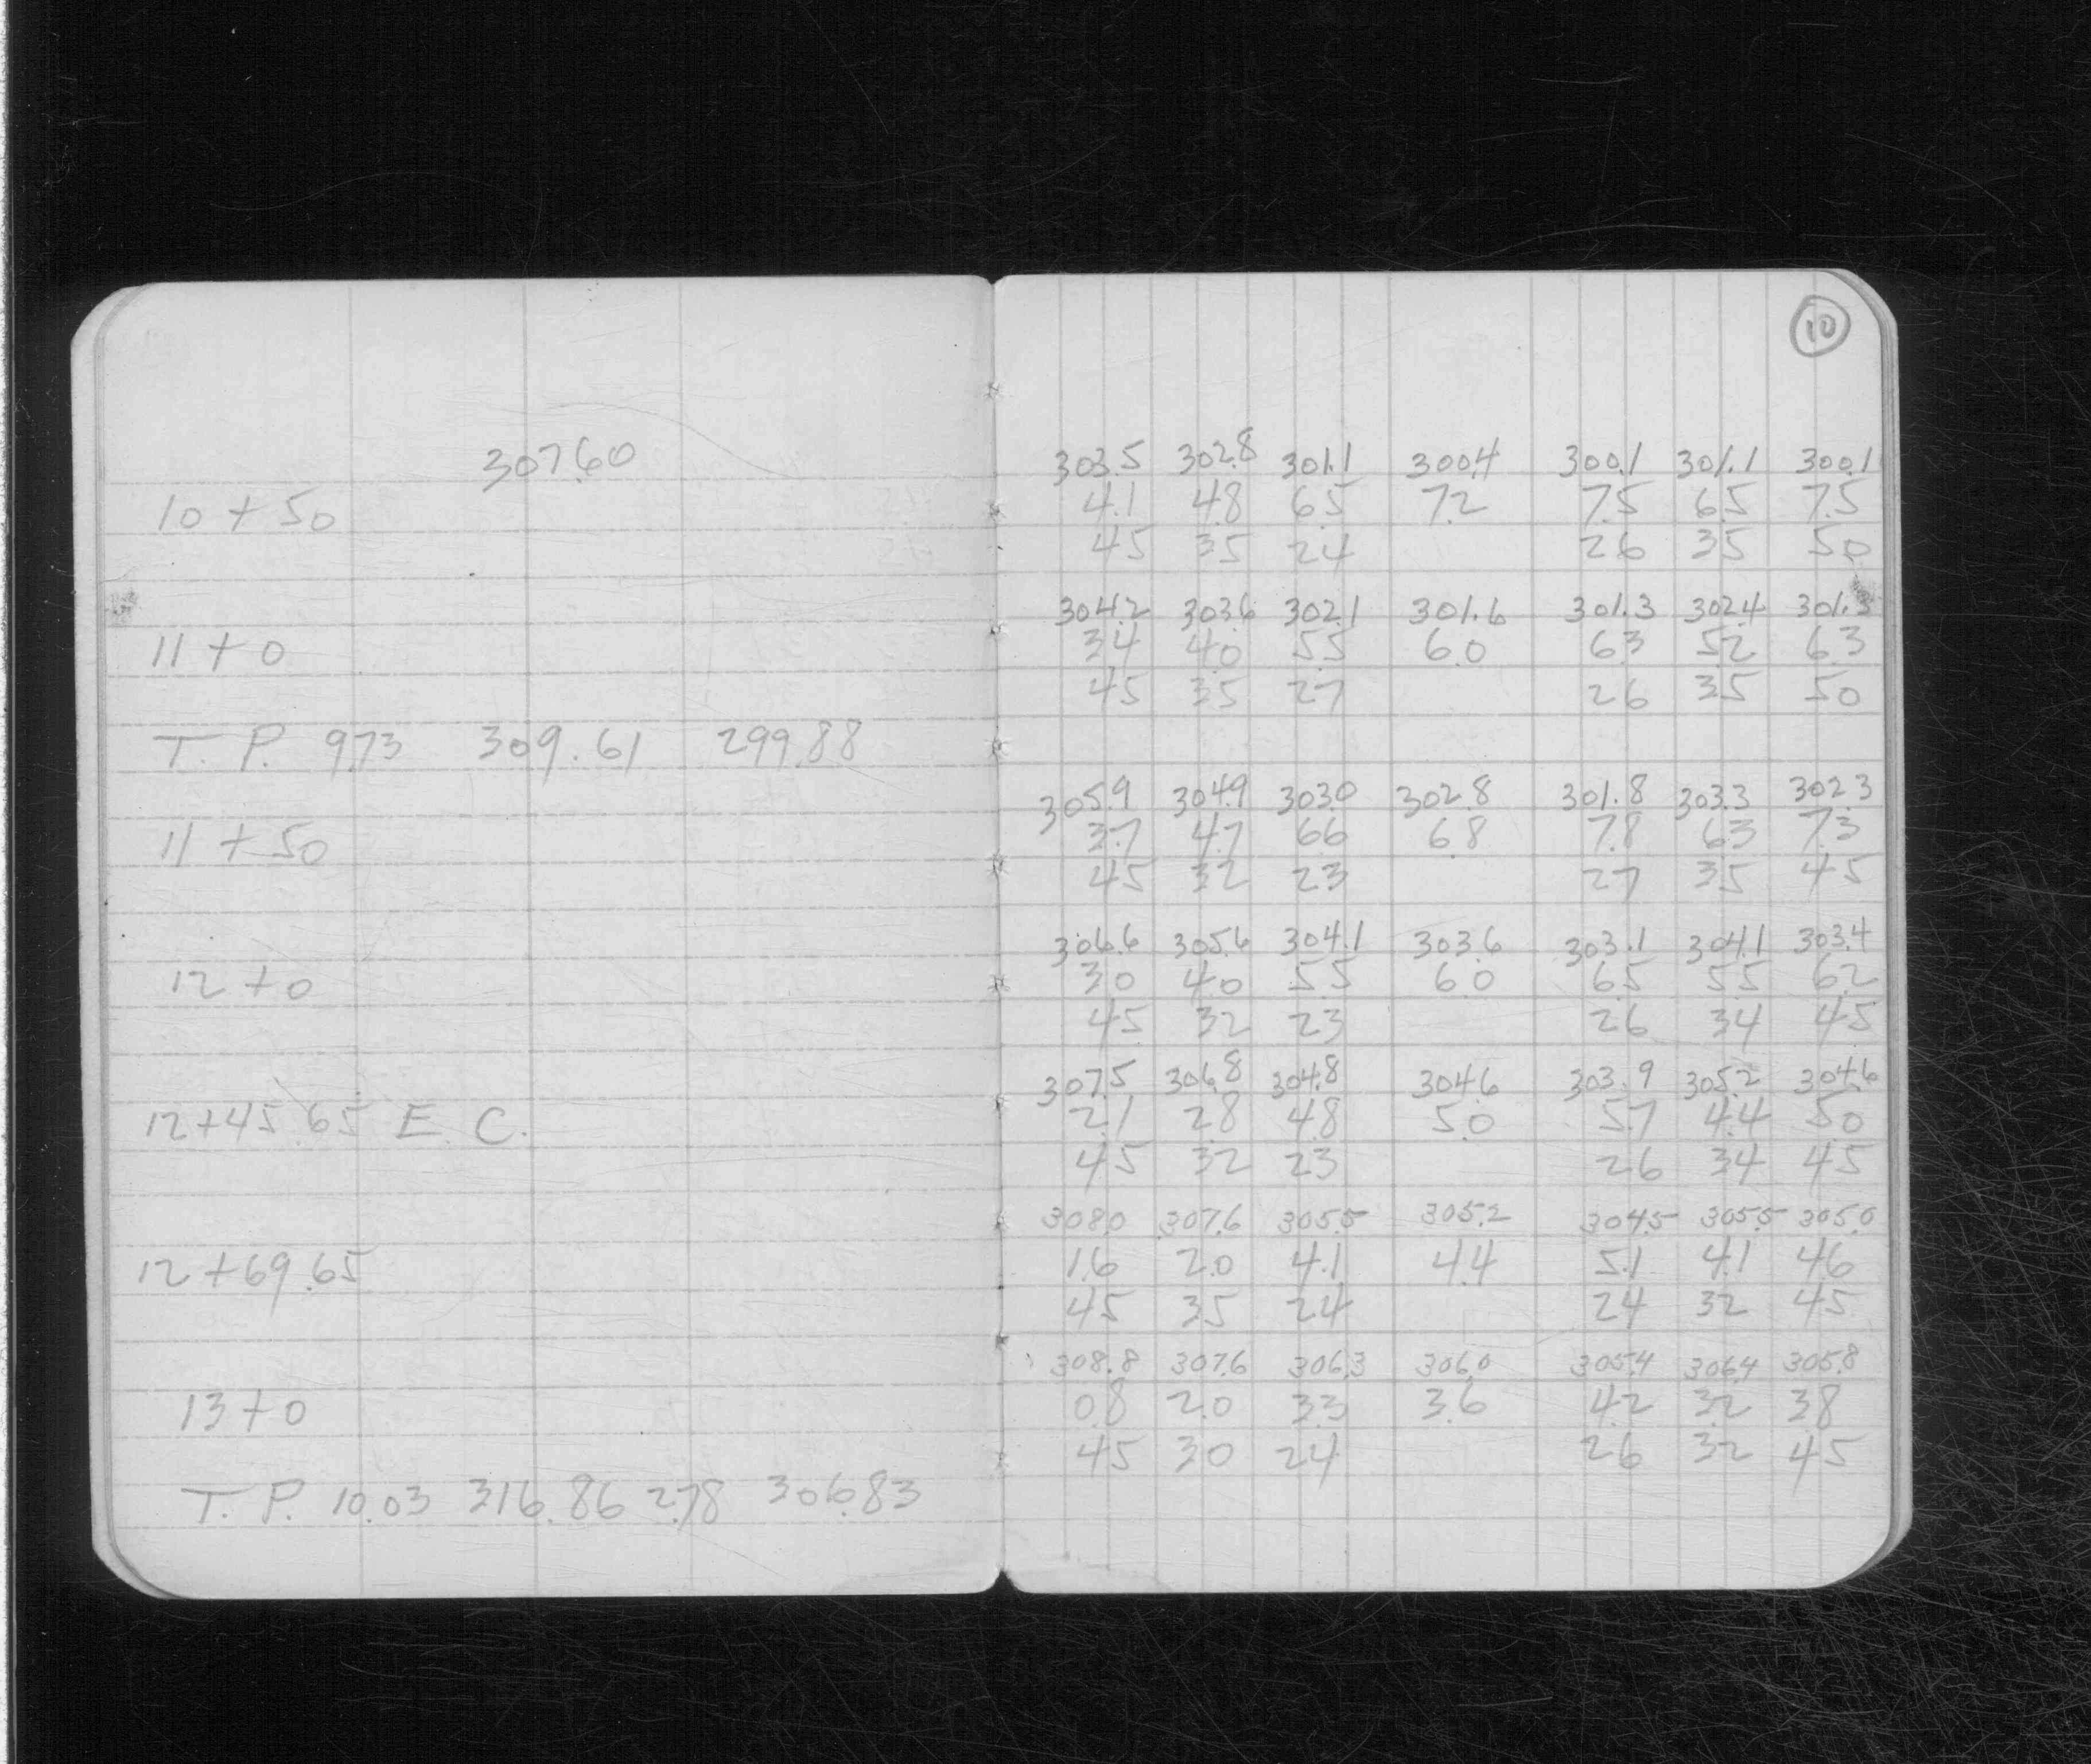 10
307.60 303.5 302.8 301.1 300.4 300.1 301.1 300.1
10 + 50 4.1 4.8 6.5 7.2 7.5 6.5 7.5
45 35 24 26 35 50
304.2 303.6 302.1 301.6 301.3 302.4 301.3
11 + 0 3.4 4.0 5.5 6.0 6.3 5.2 6.3
45 35 27 26 35 50
T. P. 9.73 309.61 299.88
305.9 304.9 303.0 302.8 301.8 303.3 302.3
11 + 50 3.7 4.7 6.6 6.8 7.8 6.3 7.3
45 32 23 27 35 45
306.6 305.6 304.1 303.6 303.1 304.1 303.4
12 + 0 3.0 4.0 5.5 6.0 6.5 5.5 6.2
45 32 23 26 34 45
307.5 306.8 304.8 304.6 303.9 305.2 304.6
12 + 45.65 E. C. 2.1 2.8 4.8 5.0 5.7 4.4 5.0
45 32 23 26 34 45
308.0 307.6 305.5 305.2 304.5 305.5 305.0
12 + 69.65 1.6 2.0 4.1 4.4 5.1 4.1 4.6
45 35 24 24 32 45
308.8 307.6 306.3 306.0 305.4 306.4 305.8
13 + 0 0.8 2.0 3.3 3.6 4.2 3.2 3.8
45 30 24 26 32 45
T. P. 10.03 316.86 2.78 306.83